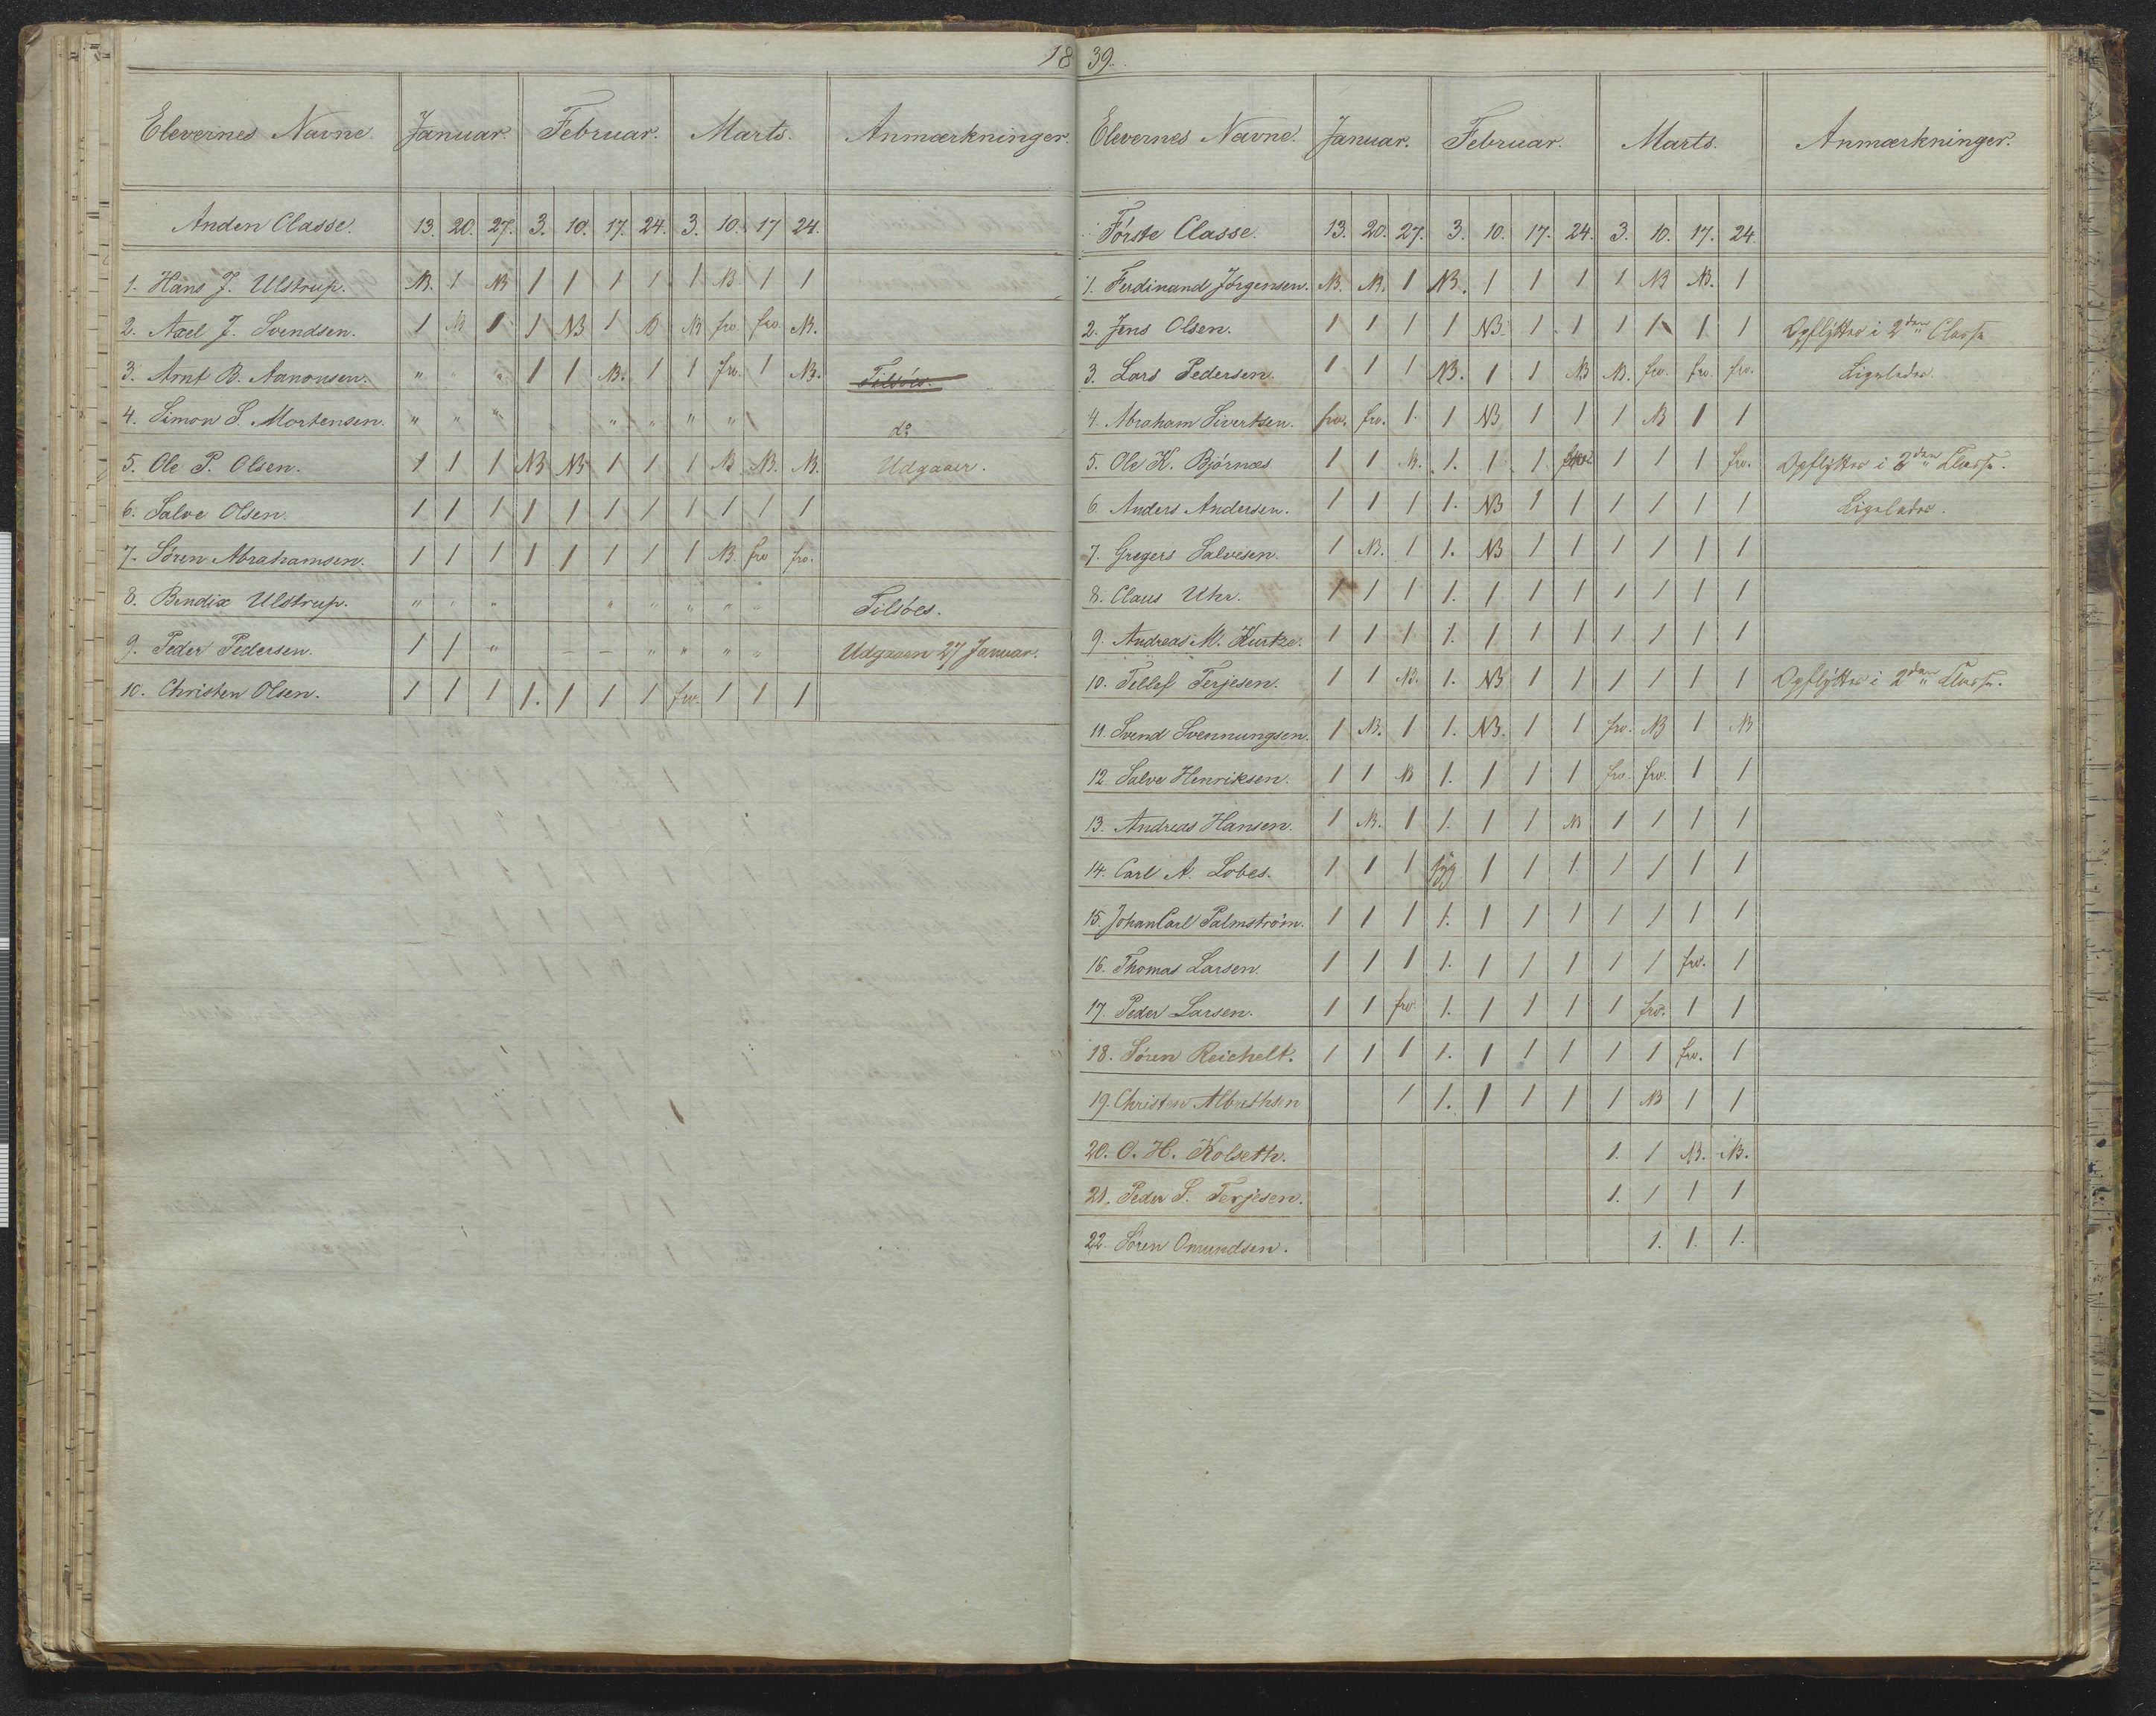 1839.
Elevernes Navne. Januar. Februar. Marts. Anmærkninger.
Anden Classe. 13. 20. 27. 3. 10. 17. 24. 3. 10. 17 24.
1. Hans J. Ulstrup. NB. 1 NB 1 1 1 1 1 NB 1 1
2. Axel J. Svendsen. 1 NB 1 1 NB 1 NB NB frv. frv. NB.
3. Arnt B. Aanonsen. " " " 1 1 NB. 1 1 frv. 1 NB. Tilsöes.
4. Simon S. Mortensen. " " " " " " " do
5. Ole P. Olsen. 1 1 1 NB NB 1 1 1 NB NB. NB. Udgaaer.
6. Salve Olsen. 1 1 1 1 1 1 1 1 1 1 1
7. Sören Abrahamsen. 1 1 1 1 1 1 1 1 NB frv frv.
8. Bendix Ulstrup. " " " " " " " " Tilsöes.
9. Peder Pedersen. 1 1 " – – " " " " Udgaaen 27 Januar.
10. Christen Olsen. 1 1 1 1. 1 1 1 frv. 1 1 1
Elevernes Navne. Januar. Februar. Marts. Anmærkninger.
Förste Classe. 13. 20. 27. 3. 10. 17. 24. 3. 10. 17. 24
1. Ferdinand Jörgensen. NB. NB. 1 NB. 1 1 1 1 NB NB. 1
2. Jens Olsen. 1 1 1 1 NB 1 1 1 1 1 1 Opflyttes i 2den Classe
3. Lars Pedersen. 1 1 1 NB. 1 1 NB NB. frv. frv. frv. Ligeledes.
4. Abraham Sivertsen. frv. frv. 1. 1 NB 1 1 1 NB 1 1
5. Ole K. Björnæs 1 1 NB. 1. 1 1 1 1 1 frv. Opflyttes i 2den Classe.
6. Anders Andersen. 1 1 1 1. NB 1 1 1 1 1 1 Ligeledes.
7. Gregers Salvesen. 1 NB. 1 1. NB 1 1 1 1 1 1
8. Claus Uhr. 1 1 1 1. 1 1 1 1 1 1 1
9. Andreas M. Kurtze. 1 1 1 1. 1 1 1 1 1 1 1
10. Tellef Terjesen. 1 1 NB. 1. NB 1 1 1 1 1 1 Opflyttes i 2den Classe.
11. Svend Svennungsen. 1 NB. 1 1. NB. 1 1 frv. NB 1 NB
12. Salve Henriksen. 1 1 NB 1. 1 1 1 frv. frv. 1 1
13. Andreas Hansen. 1 NB. 1 1. 1 1 NB 1 1 1 1
14. Carl A. Lobes. 1 1 1 syg 1 1 1 1 1 1 1
15. Johan Carl Palmström. 1 1 1 1. 1 1 1 1 1 1 1
16. Thomas Larsen. 1 1 1 1. 1 1 1 1 1 frv. 1
17. Peder Larsen. 1 1 frv. 1. 1 1 1 1 frv. 1 1
18. Sören Reichelt. 1 1 1 1. 1 1 1 1 1 frv. 1
19. Christen Albrethsen 1 1. 1 1 1 1 NB 1 1
20. O. H. Kolseth. 1. 1 NB. NB.
21. Peder S. Terjesen. 1. 1 1 1
22. Sören Omundsen. 1. 1. 1.